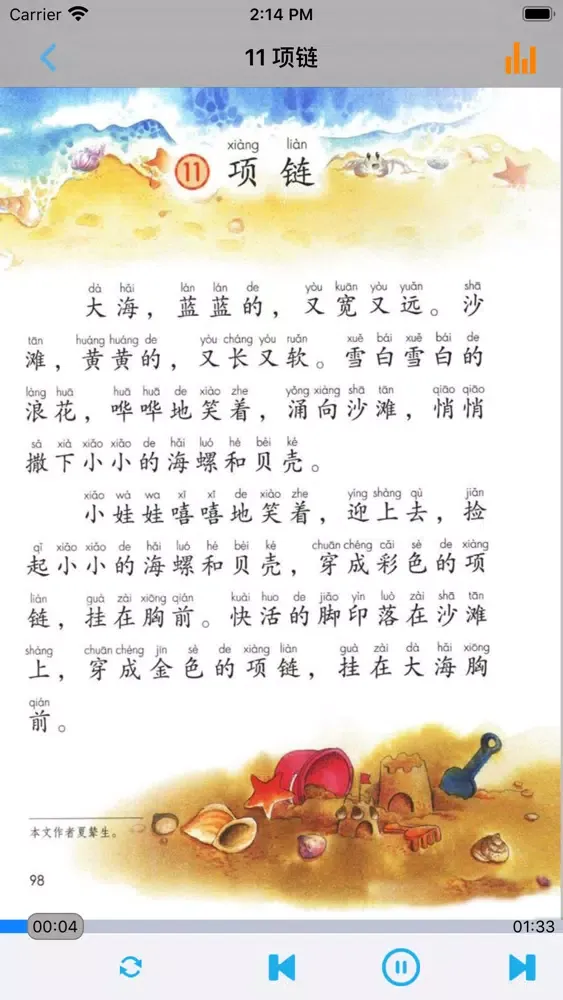 Carrier 2:14 PM
11 项链
xiàng liàn
11 项链
dà hǎi lán lán de yòu kuān yòu yuǎn shā
大海，蓝蓝的，又宽又远。沙
tān huáng huáng de yòu cháng yòu ruǎn xuě bái xuě bái de
滩，黄黄的，又长又软。雪白雪白的
làng huā huā huā de xiào zhe yǒng xiàng shā tān qiāo qiāo
浪花，哗哗地笑着，涌向沙滩，悄悄
sǎ xià xiǎo xiǎo de hǎi luó hé bèi ké
撒下小小的海螺和贝壳。
xiǎo wá wa xī xī de xiào zhe yíng shàng qù jiǎn
小娃娃嘻嘻地笑着，迎上去，捡
qǐ xiǎo xiǎo de hǎi luó hé bèi ké chuān chéng cǎi sè de xiàng
起小小的海螺和贝壳，穿成彩色的项
liàn guà zài xiōng qián kuài huo de jiǎo yìn luò zài shā tān
链，挂在胸前。快活的脚印落在沙滩
shàng chuān chéng jīn sè de xiàng liàn guà zài dà hǎi xiōng
上，穿成金色的项链，挂在大海胸
qián
前。
本文作者夏辇生。
98
00:04 01:33